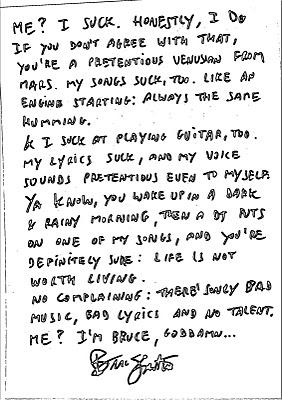 ME? I SUCK. HONESTLY, I DO
IF YOU DON'T AGREE WITH THAT,
YOU'RE A PRETENTIOUS VENUSIAN FROM
MARS. MY SONGS SUCK, TOO. LIKE AN
ENGINE STARTING: ALWAYS THE SAME
HUMMING.
& I SUCK AT PLAYING GUITAR, TOO.
MY LYRICS SUCK, AND MY VOICE
SOUNDS PRETENTIOUS EVEN TO MYSELF.
YA KNOW, YOU WAKE UP IN A DARK
& RAINY MORNING, THEN A DJ PUTS
ON ONE OF MY SONGS, AND YOU'RE
DEFINITELY SURE: LIFE IS NOT
WORTH LIVING.
NO COMPLAINING: THERE'S ONLY BAD
MUSIC, BAD LYRICS AND NO TALENT.
ME? I'M BRUCE, GODDAMN...